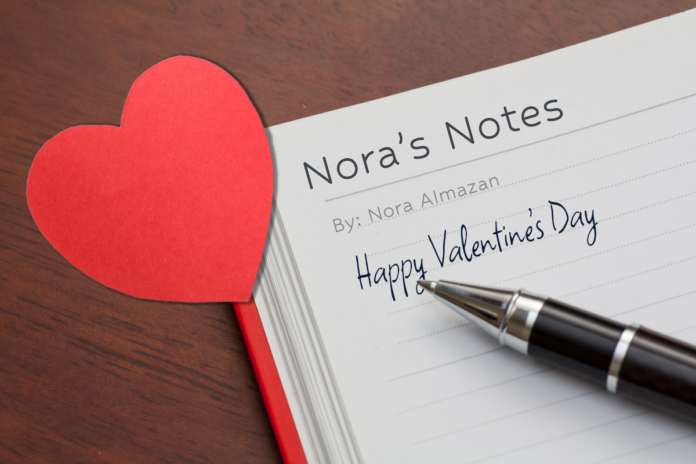 Nora's Notes
By: Nora Almazan
Happy Valentine's Day